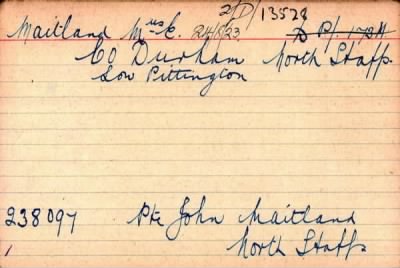 2/D/13528
Maitland Mrs E. 24/8/23 P/. 172 H
Co Durham North Staffs.
Low Pittington
238097 Pte John Maitland
North Staffs
1